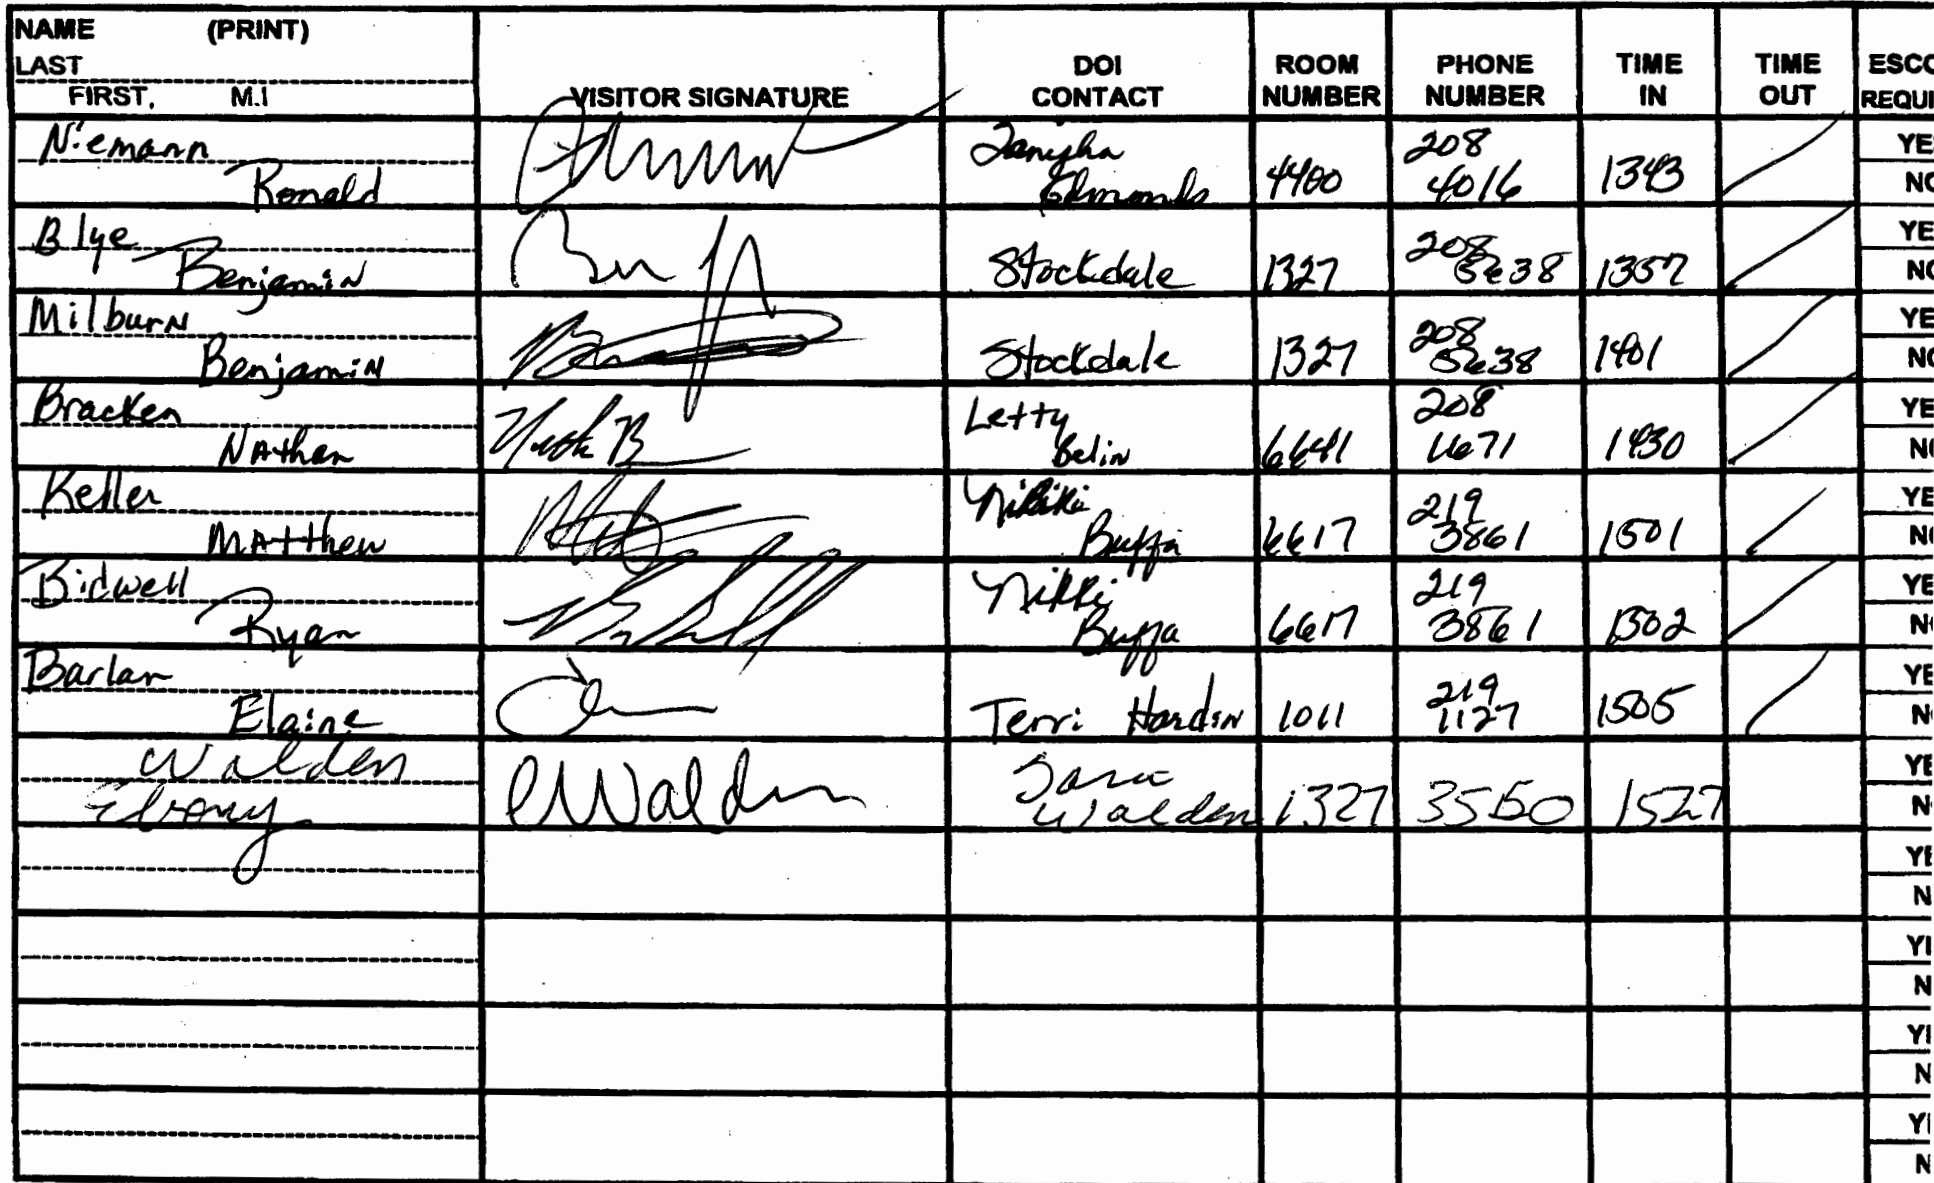 NAME (PRINT)
LAST
FIRST, M.I
VISITOR SIGNATURE
DOI
CONTACT
ROOM
NUMBER
PHONE
NUMBER
TIME
IN
TIME
OUT
ESCO
REQUI
Niemann
Ronald
Tanisha
Edmonds
4400
208
4016
1343
YE
NO
Blye
Benjamin
Stockdale
1327
208
5638
1357
YE
NO
Milburn
Benjamin
Stockdale
1327
208
5638
1401
YE
NO
Bracken
Nathan
Letty
Belin
6641
208
1430
YE
N
Keller
Matthew
Buffa
6617
219
3861
1501
YE
N
Bidwell
Ryan
Nikki
Buffa
6617
219
3861
1502
YE
N
Barlan
Elaine
Terri Hardin
1011
219
1127
1505
YE
N
Walden
Ebony
EWalden
Walden
1327
1527
YE
N
YE
N
YI
N
YI
N
YI
N